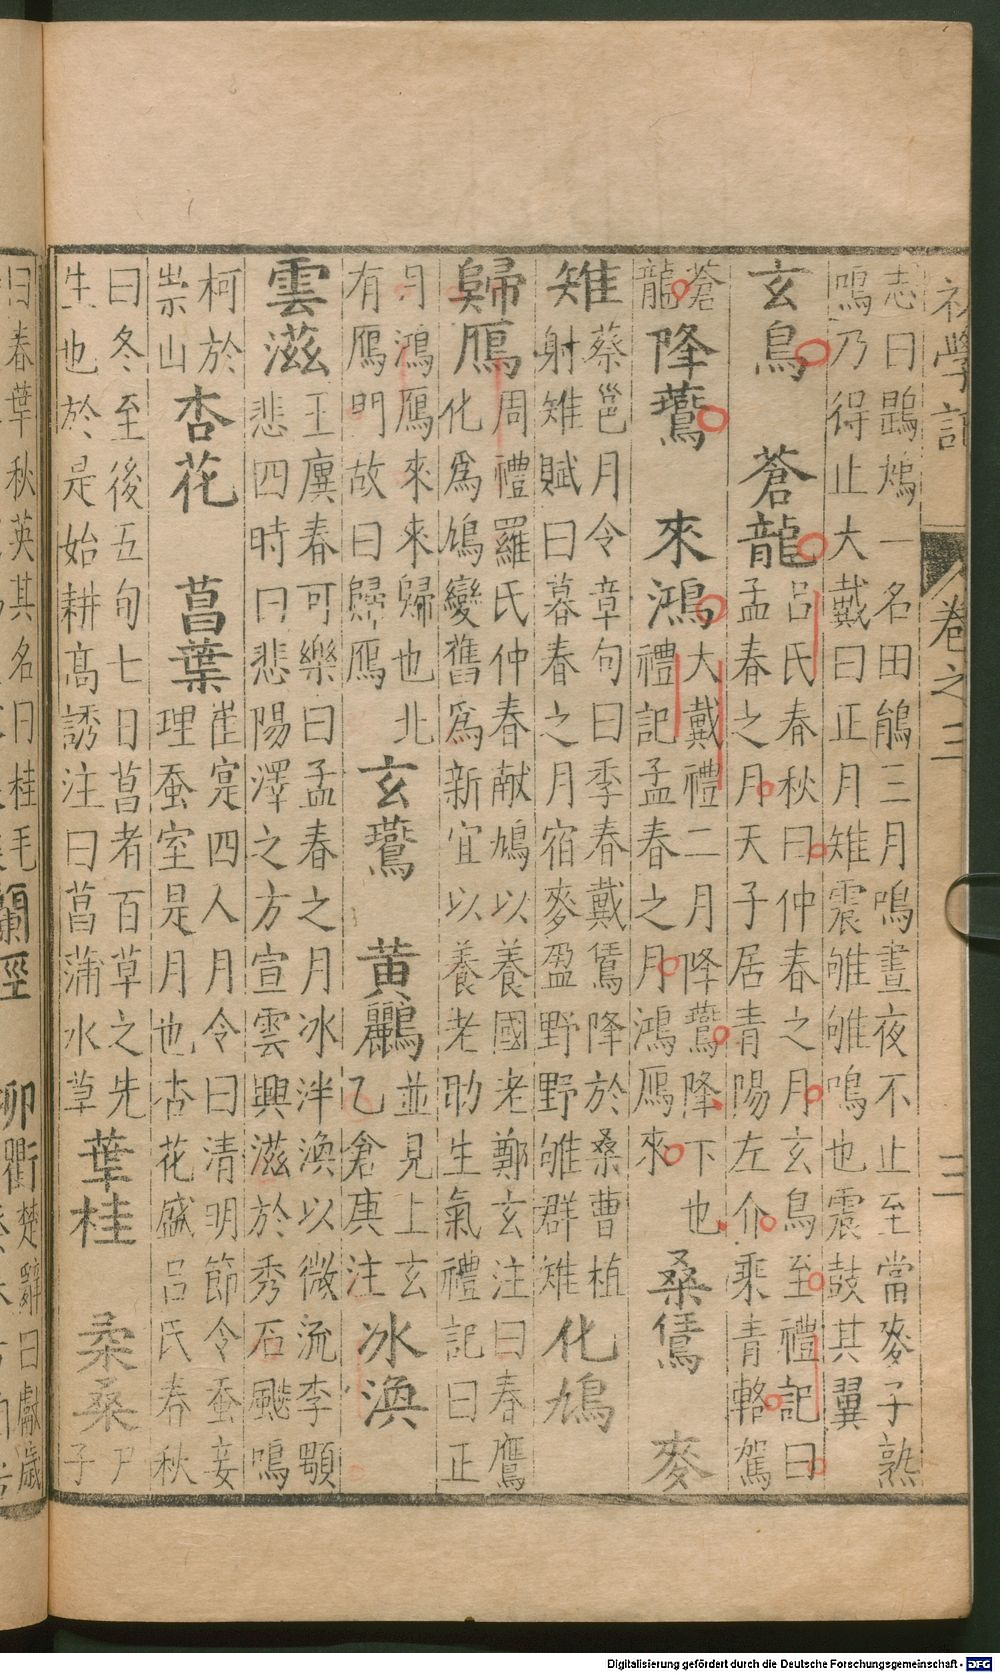 初學記 卷之三 三
志曰鶗鴂一名田鵑三月鳴晝夜不止至當麥子熟
鳴乃得止大戴曰正月雉震雊雊鳴也震鼓其翼
玄鳥 蒼龍
呂氏春秋曰仲春之月玄鳥至禮記曰
孟春之月天子居青陽左介乘青輅駕
蒼
龍
降鷰 來鴻
大戴禮二月降鷰降下也
禮記孟春之月鴻鴈來
桑鵀 麥
雉
蔡邕月令章句曰季春戴鵀降於桑曹植
射雉賦曰暮春之月宿麥盈野野雊群雉
化鳩
歸鴈
周禮羅氏仲春献鳩以養國老鄭玄注曰春鷹
化爲鳩變舊爲新宜以養老助生氣禮記曰正
月鴻鴈來來歸也北
有鴈門故曰歸鴈
玄鷰 黄鸝
並見上玄
乙倉庚注
冰渙
雲滋
王廙春可樂曰孟春之月冰泮渙以微流李顒
悲四時曰悲陽澤之方宣雲興滋於秀石颷鳴
柯於
崇山
杏花 菖葉
崔寔四人月令曰清明節令蚕妾
理蚕室是月也杏花盛呂氏春秋
曰冬至後五旬七日菖者百草之先
生也於是始耕高誘注曰菖蒲水草
葉桂 柔桑
尸
子
曰春葉秋英其名曰桂毛
蘭徑 柳衢
楚辭曰獻歲
Digitalisierung gefördert durch die Deutsche Forschungsgemeinschaft - DFG